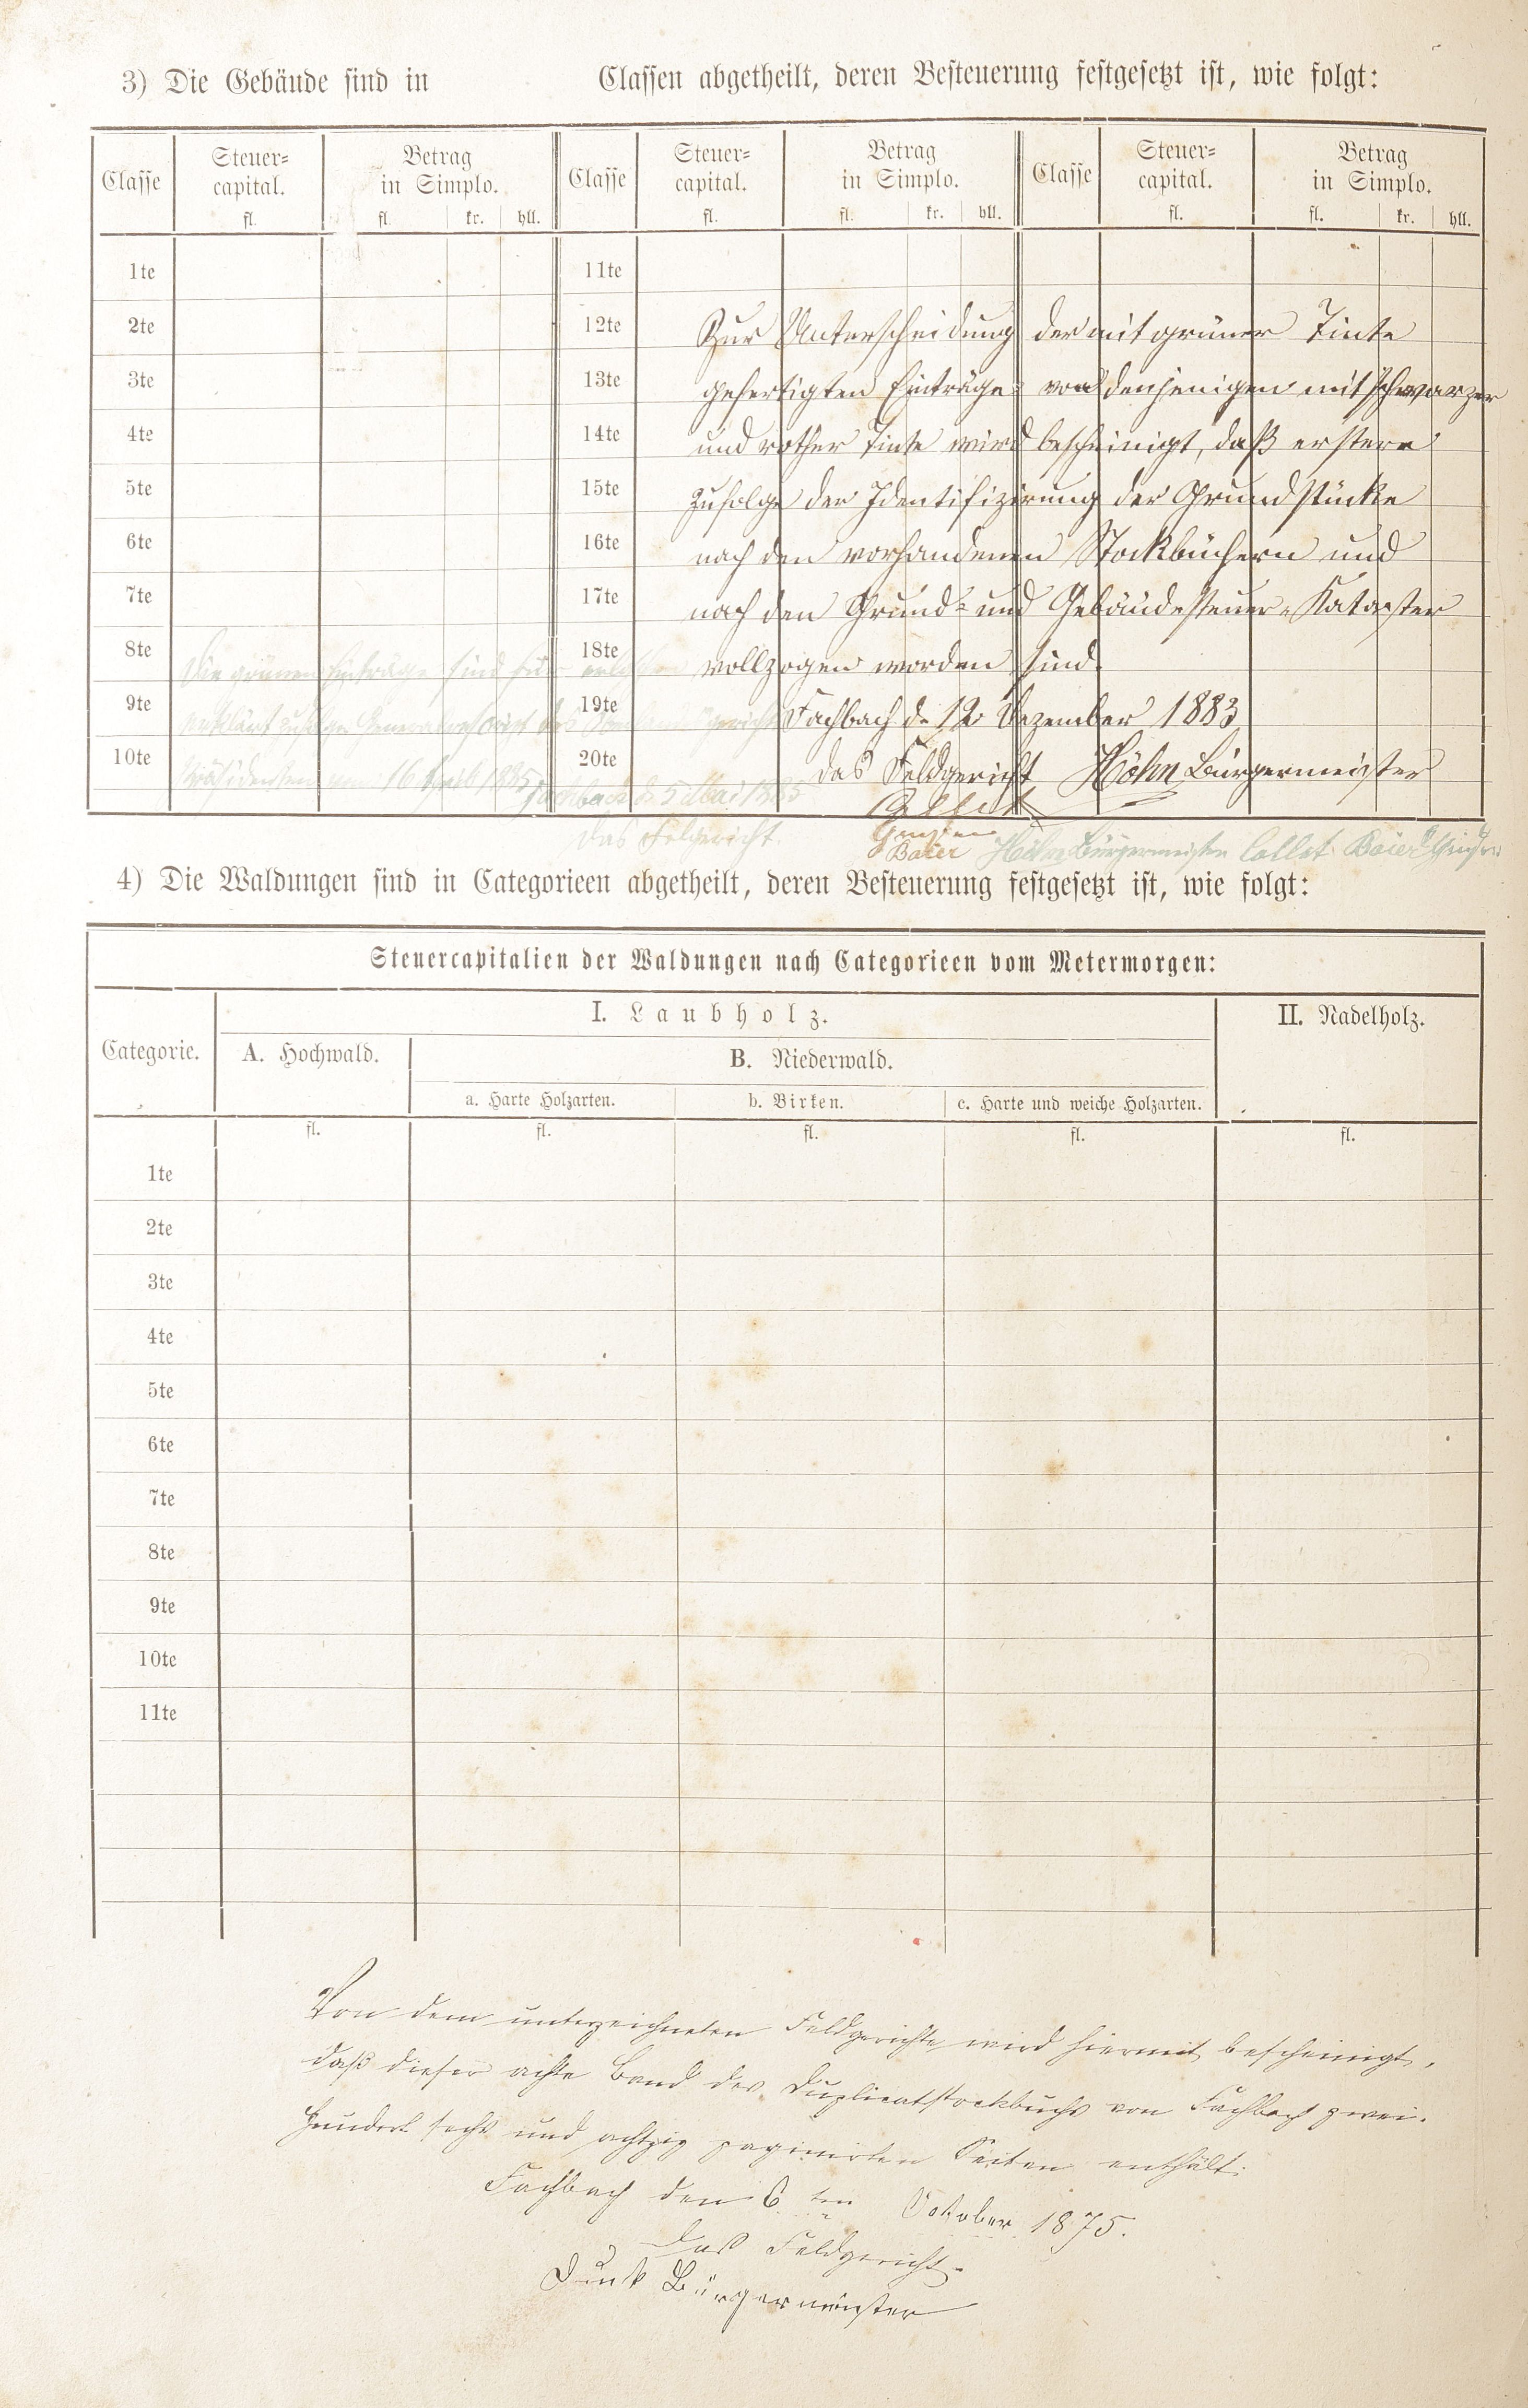 3) Die Gebäude sind in Classen abgetheilt, deren Besteuerung festgesetzt ist, wie folgt:
Classe Steuer= capital. fl. Betrag in Simplo. fl. kr. hll. Classe Steuer= capital. fl. Betrag in Simplo. fl. kr. hll. Classe Steuer= capital. fl. Betrag in Simplo. fl. kr. hll.
1te 11te
2te 12te Zur Unterscheidung der mit grüner Tinte
3te 13te gefertigten Einträge von denjenigen mit schwarzer
4te 14te und rother Tinte wird bescheinigt, daß erstere
5te 15te zufolge der Identifizirung der Grundstücke
6te 16te nach den vorhandenen Stockbüchern und
7te 17te nach den Grund- und Gebäudesteuer-Kataster
8te 18te vollzogen worden sind.
Die grünen Einträge sind für
9te 19te Fachbach d. 12 Dezember 1883
zufolge
10te 20te Das Feldgericht Höhn Bürgermeister
Präsidenten vom 16 1885 Fachbach d. 5 Mai 1885
Collet
Das Felgericht.
Baier Höhn Bürgermeister Collet Baier
4) Die Waldungen sind in Categorieen abgetheilt, deren Besteuerung festgesetzt ist, wie folgt:
Steuercapitalien der Waldungen nach Categorieen vom Metermorgen:
Categorie. I. Laubholz. II. Nadelholz.
A. Hochwald. B. Niederwald.
a. Harte Holzarten. b. Birken. c. Harte und weiche Holzarten.
fl. fl. fl. fl. fl.
1te
2te
3te
4te
5te
6te
7te
8te
9te
10te
11te
Von dem unterzeichneten Feldgerichte wird hiermit bescheinigt,
daß dieser achte Band des Duplicatstockbuchs von Fachbach zwei-
hundert sechs und achtzig paginirten Seiten enthält.
Fachbach den 6ten October 1875.
Das Feldgericht.
Bürgermeister